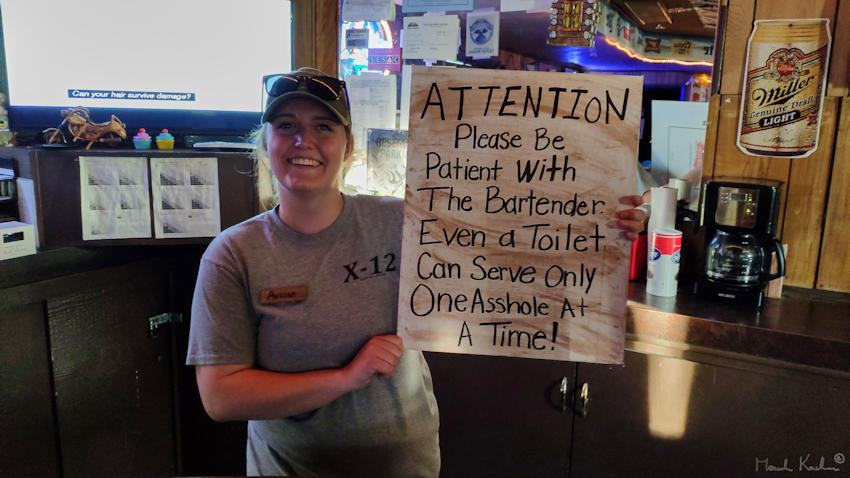 Can your hair survive damage?
ATTENTION
Please Be
Patient With
The Bartender.
Even a Toilet
Can Serve Only
One Asshole At
A Time!
X-12
Miller
Genuine Draft
LIGHT